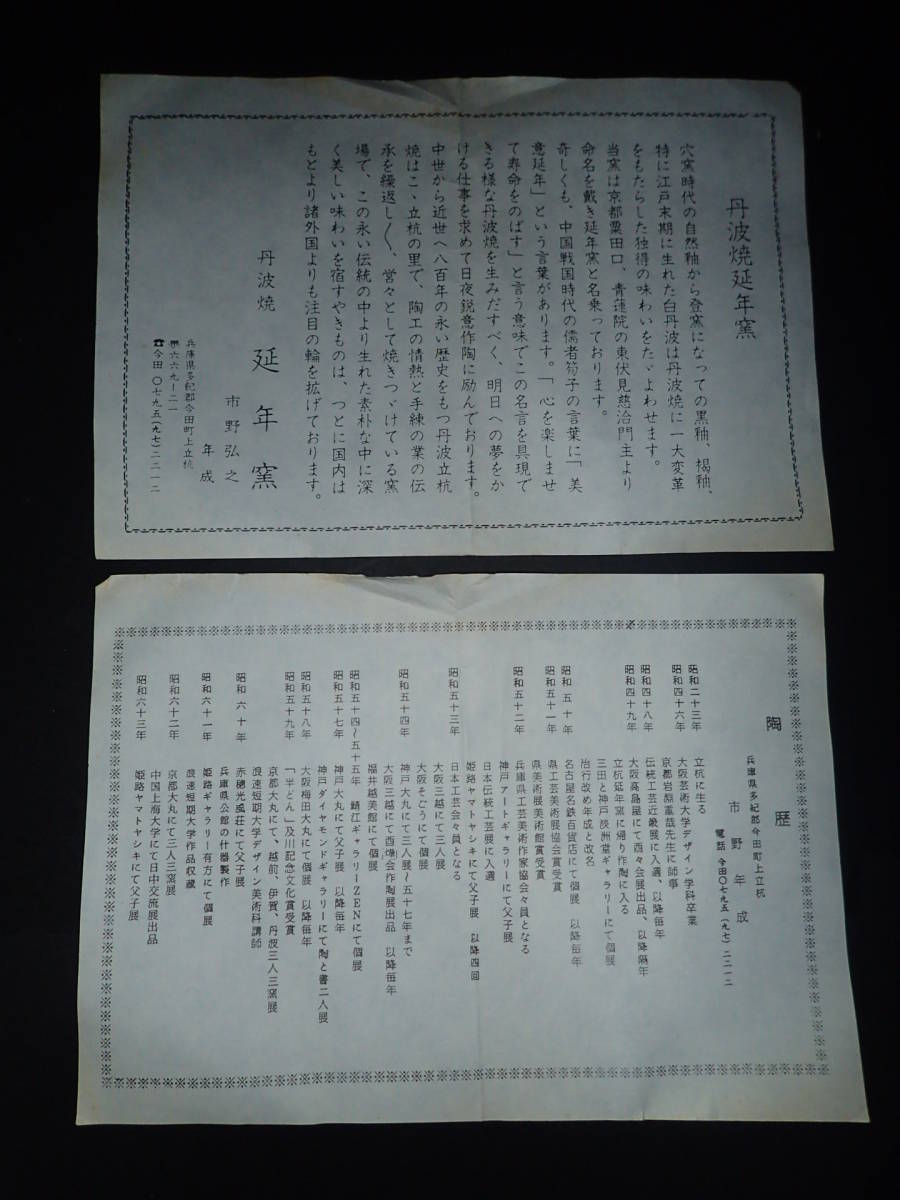 丹波焼延年窯
穴窯時代の自然釉から登窯になっての黒釉、榻釉、
特に江戸末期に生れた白丹波は丹波焼に一大変革
をもたらした独得の味わいをたゞよわせます。
当窯は京都粟田口、青蓮院の東伏見慈洽門主より
命名を戴き延年窯と名乗っております。
奇しくも、中国戦国時代の儒者筍子の言葉に「美
意延年」という言葉があります。「心を楽しませ
て寿命をのばす」と言う意味でこの名言を具現で
きる様な丹波焼を生みだすべく、明日への夢をか
ける仕事を求めて日夜鋭意作陶に励んでおります。
中世から近世へ八百年の永い歴史をもつ丹波立杭
焼はこゝ立杭の里で、陶工の情熱と手練の業の伝
承を繰返し〱、営々として焼きつゞけている窯
場で、この永い伝統の中より生れた素朴な中に深
く美しい味わいを宿すやきものは、つとに国内は
もとより諸外国よりも注目の輪を拡げております。
丹波焼 延年窯
市野弘之
年成
兵庫県多紀郡今田町上立杭
〠六六九ー二一
☎今田〇七九五(九七)二二一二
陶歴
兵庫県多紀郡今田町上立杭
市野年成
電話 今田〇七九五(九七)二二一二
昭和二十三年 立杭に生る
大阪芸術大学デザイン学科卒業
昭和四十六年 京都岩淵重哉先生に師事
伝統工芸近畿展に入選、以降毎年
昭和四十八年 大阪高島屋にて酉々会展出品、以降隔年
昭和四十九年 立杭延年窯に帰り作陶に入る
三田と神戸淡洲堂ギャラリーにて個展
治行改め年成と改名
名古屋名鉄百貨店にて個展 以降毎年
昭和五十年 県工芸美術展協会賞受賞
昭和五十一年 県美術展美術館賞受賞
兵庫県工芸美術作家協会々員となる
昭和五十二年 神戸アートギャラリーにて父子展
日本伝統工芸展に入選
姫路ヤマトヤシキにて父子展 以降四回
昭和五十三年 日本工芸会々員となる
大阪三越にて三人展
大阪そごうにて個展
昭和五十四年 神戸大丸にて三人展～五十七年まで
大阪三越にて酉燽会作陶展出品 以降毎年
福井越美館にて個展
昭和五十四～五十五年 鯖江ギャラリーZENにて個展
昭和五十七年 神戸大丸にて父子展 以降毎年
神戸ダイヤモンドギャラリーにて陶と書二人展
昭和五十八年 大阪梅田大丸にて個展 以降毎年
昭和五十九年 「半どん」及川記念文化賞受賞
京都大丸にて、越前、伊賀、丹波三人三窯展
浪速短期大学デザイン美術科講師
昭和六十年 赤穂光威荘にて父子展
兵庫県公館の什器製作
昭和六十一年 姫路ギャラリー有方にて個展
浪速短期大学作品収蔵
昭和六十二年 京都大丸にて三人三窯展
中国上海大学にて日中交流展出品
昭和六十三年 姫路ヤマトヤシキにて父子展